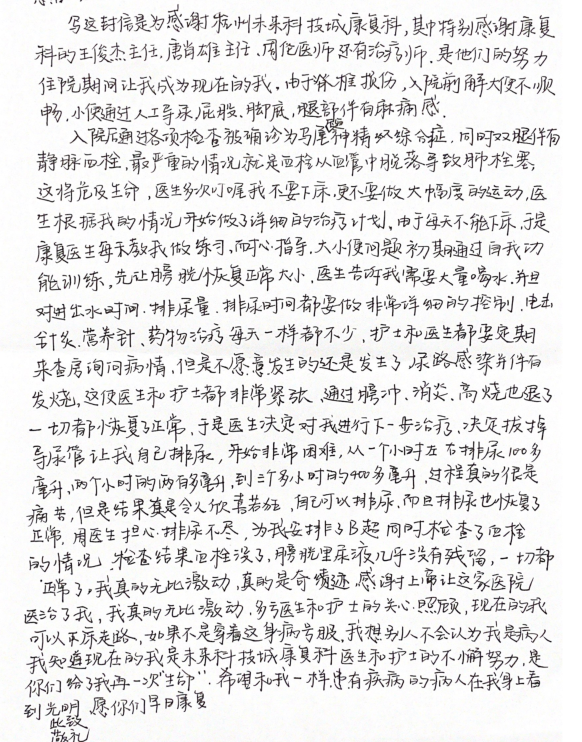 写这封信是为感谢杭州未来科技城康复科，其中特别感谢康复
科的王俊杰主任，唐肖雄主任、周佗医师还有治疗师，是他们的努力
住院期间让我成为现在的我，由于脊椎损伤，入院前解大便不顺
畅，小便通过人工导尿，屁股、脚底，腿部伴有麻痛感.
入院后通过各项检查被确诊为马尾神经综合症，同时双腿伴有
静脉血栓，最严重的情况就是血栓从血管中脱落导致肺栓塞，
这将危及生命，医生多次叮嘱我不要下床，更不要做大幅度的运动，医
生根据我的情况开始做了详细的治疗计划，由于每天不能下床，于是
康复医生每天教我做练习，耐心指导，大小便问题初期通过自我功
能训练，先让膀胱恢复正常大小，医生告诉我需要大量喝水，并且
对进出水时间、排尿量、排尿时间都要做非常详细的控制，电击
针灸、营养针、药物治疗每天一样都不少，护士和医生都要定期
来查房询问病情，但是不愿意发生的还是发生了，尿路感染并伴有
发烧，这使医生和护士都非常紧张，通过膀冲、消炎、高烧也退了
一切都恢复了正常，于是医生决定对我进行下一步治疗，决定拔掉
导尿管让我自己排尿，开始非常困难，从一个小时左右排尿100多
毫升，两个小时的两百多毫升，到三个多小时的400多毫升，过程真的很是
痛苦，但是结果真是令人欣喜若狂，自己可以排尿，而且排尿也恢复了
正常，用医生担心排尿不尽，为我安排了B超同时检查了血栓
的情况，检查结果血栓没了，膀胱里尿液几乎没有残留，一切都
正常了，我真的无比激动，真的是奇迹，感谢上帝让这家医院
医治了我，我真的无比激动，多亏医生和护士的关心、照顾，现在的我
可以下床走路，如果不是穿着这身病号服，我想别人不会认为我是病人
我知道现在的我是未来科技城康复科医生和护士的不懈努力，是
你们给了我再一次“生命”．希望和我一样患有疾病的病人在我身上看
到光明，愿你们早日康复
此致
敬礼